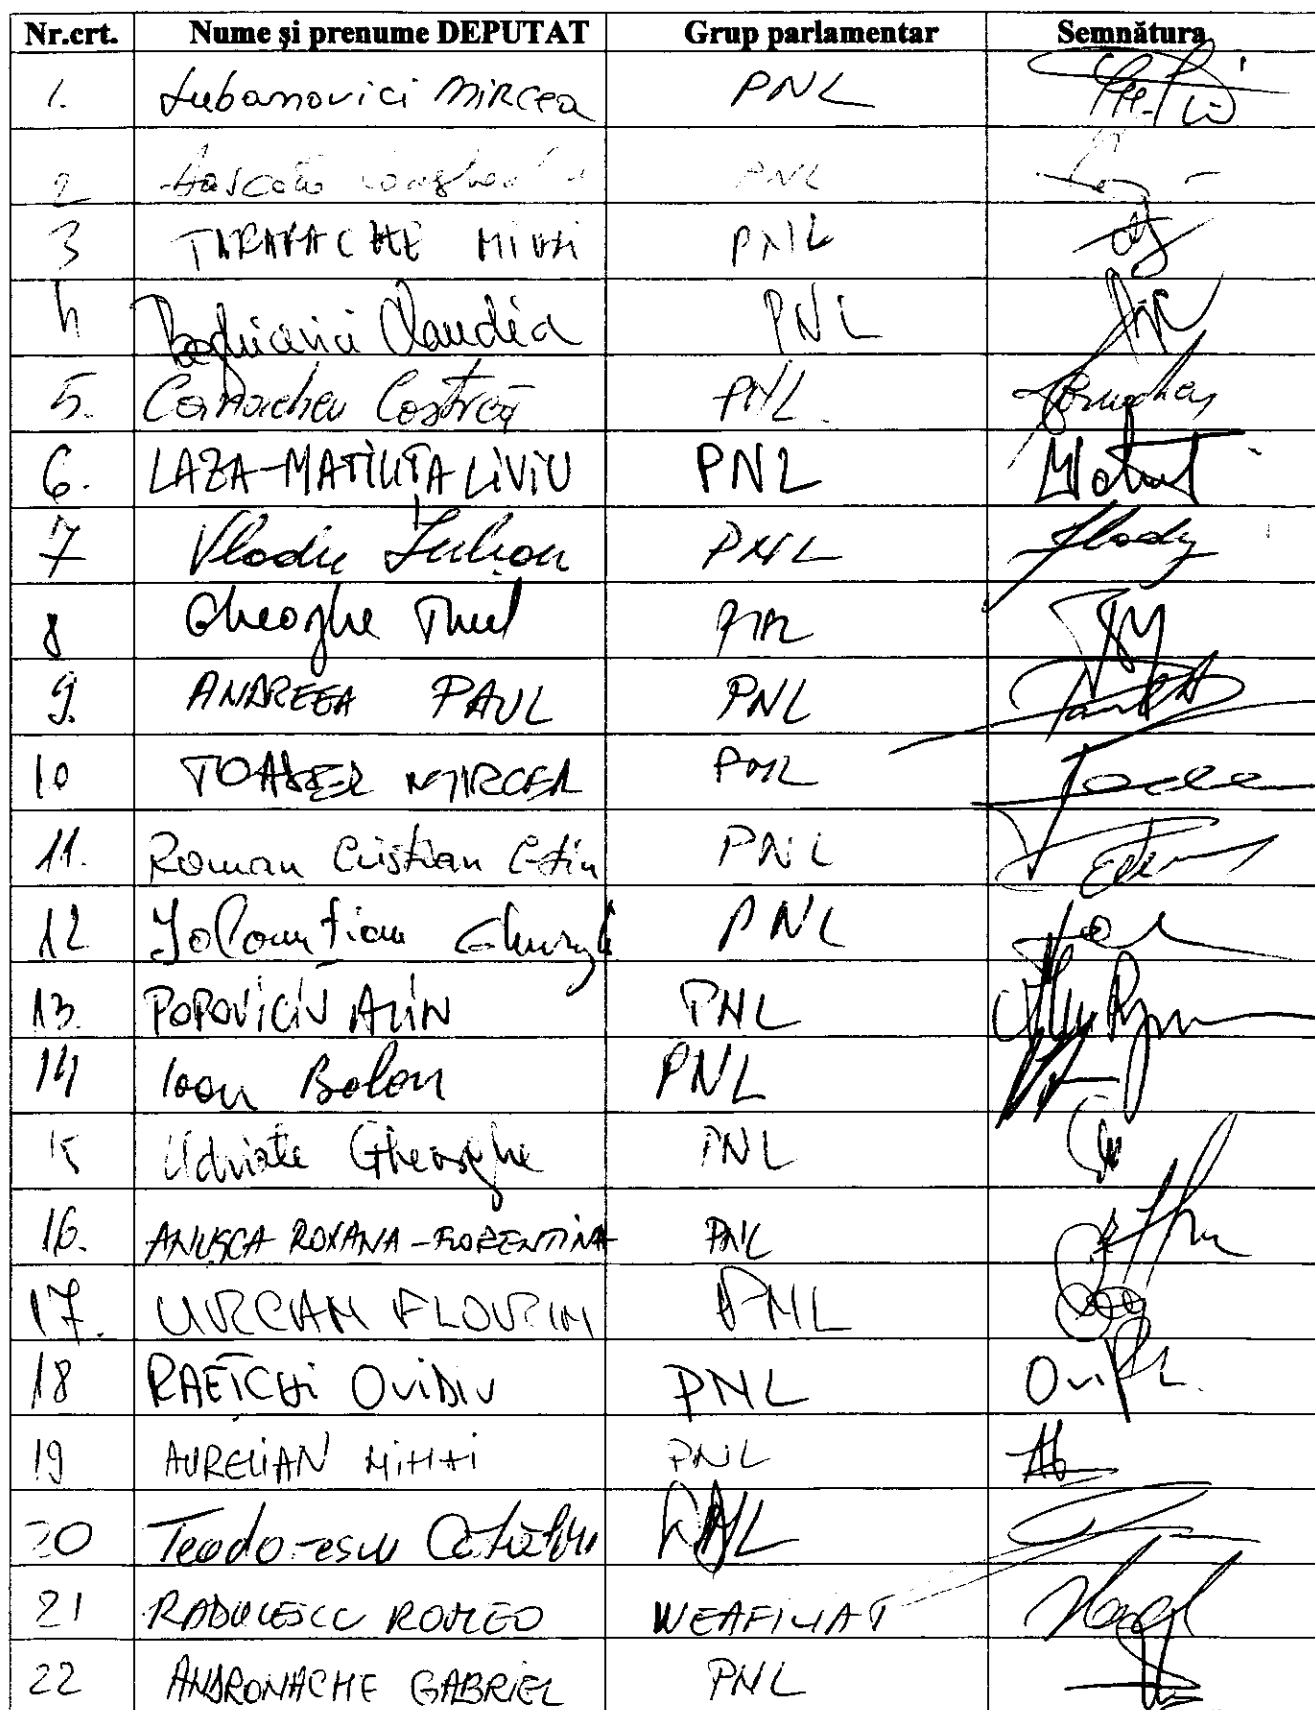 Nr.crt. Nume și prenume DEPUTAT Grup parlamentar Semnătura
1. Lubanovici Mircea PNL
2 PNL
3 TARAPACHE MIHAI PNL
4 Claudia PNL
5. Canacheu Costică PNL
6. LAZA-MATIUȚA LIVIU PNL
7 Vladu Iulian PNL
8 Gheorghe PNL
9. ANDREEA PAUL PNL
10 TOADER MIRCEA PNL
11. Roman Cristian C-tin PNL
12 Ialomițianu Gheorghe PNL
13. POPOVICIU ALIN PNL
14 Ioan Balan PNL
15 Udriște Gheorghe PNL
16. ANUȘCA ROXANA-FLORENTINA PNL
17. URCAN FLORIN PNL
18 RAEȚCHI OVIDIU PNL
19 AURELIAN MIHAI PNL
20 Teodorescu Cătălin PNL
21 RADULESCU ROMEO NEAFILIAT
22 ANDRONACHE GABRIEL PNL